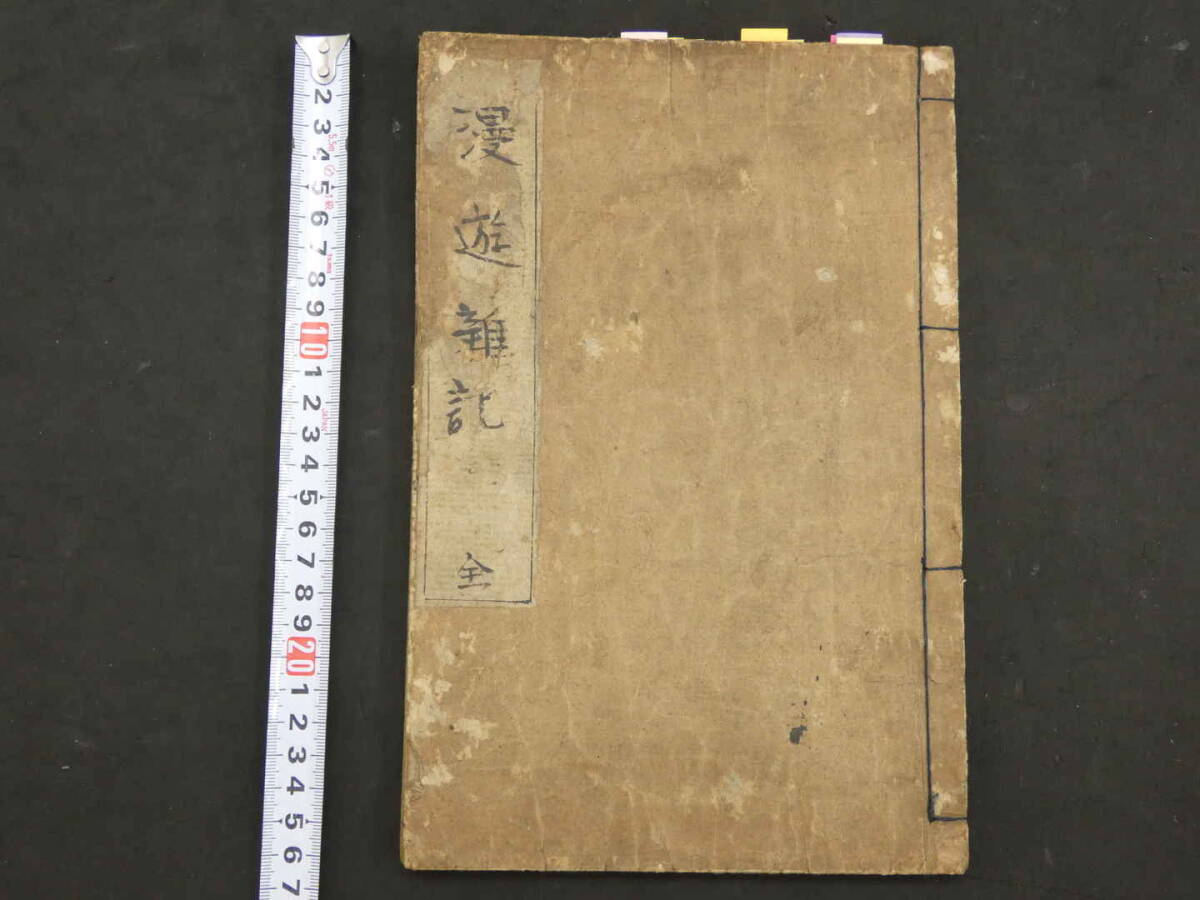 漫遊雜記
全
2
3
4
5
6
7
8
9
10
1
2
3
4
5
6
7
8
9
20
1
2
3
4
5
6
7